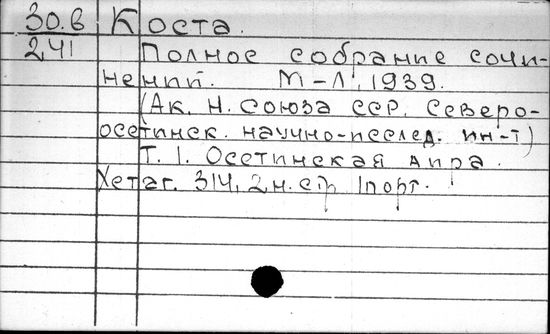 30.в Коста.
241 Полное собрание сочи-
нений. М-Л, 1939.
(Ак. Н. Союза ССР. Северо-
осетинск. научно-исслед. ин-т)
Т. 1. Осетинская лира.
Хетаг. 314, 2 н. стр. 1 порт.